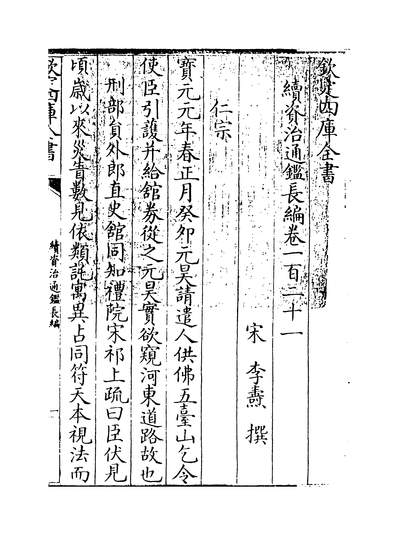 欽定四庫全書
續資治通鑑長編卷一百二十一
宋 李燾 撰
仁宗
寳元元年春正月癸卯元昊請遣人供佛五臺山乞令
使臣引護并給館券從之元昊實欲窺河東道路故也
刑部員外郎直史館同知禮院宋祁上疏曰臣伏見
頃歲以來災眚數見依類託寓異占同符天本視法而
欽定四庫全書
續資治通鑑長編
一